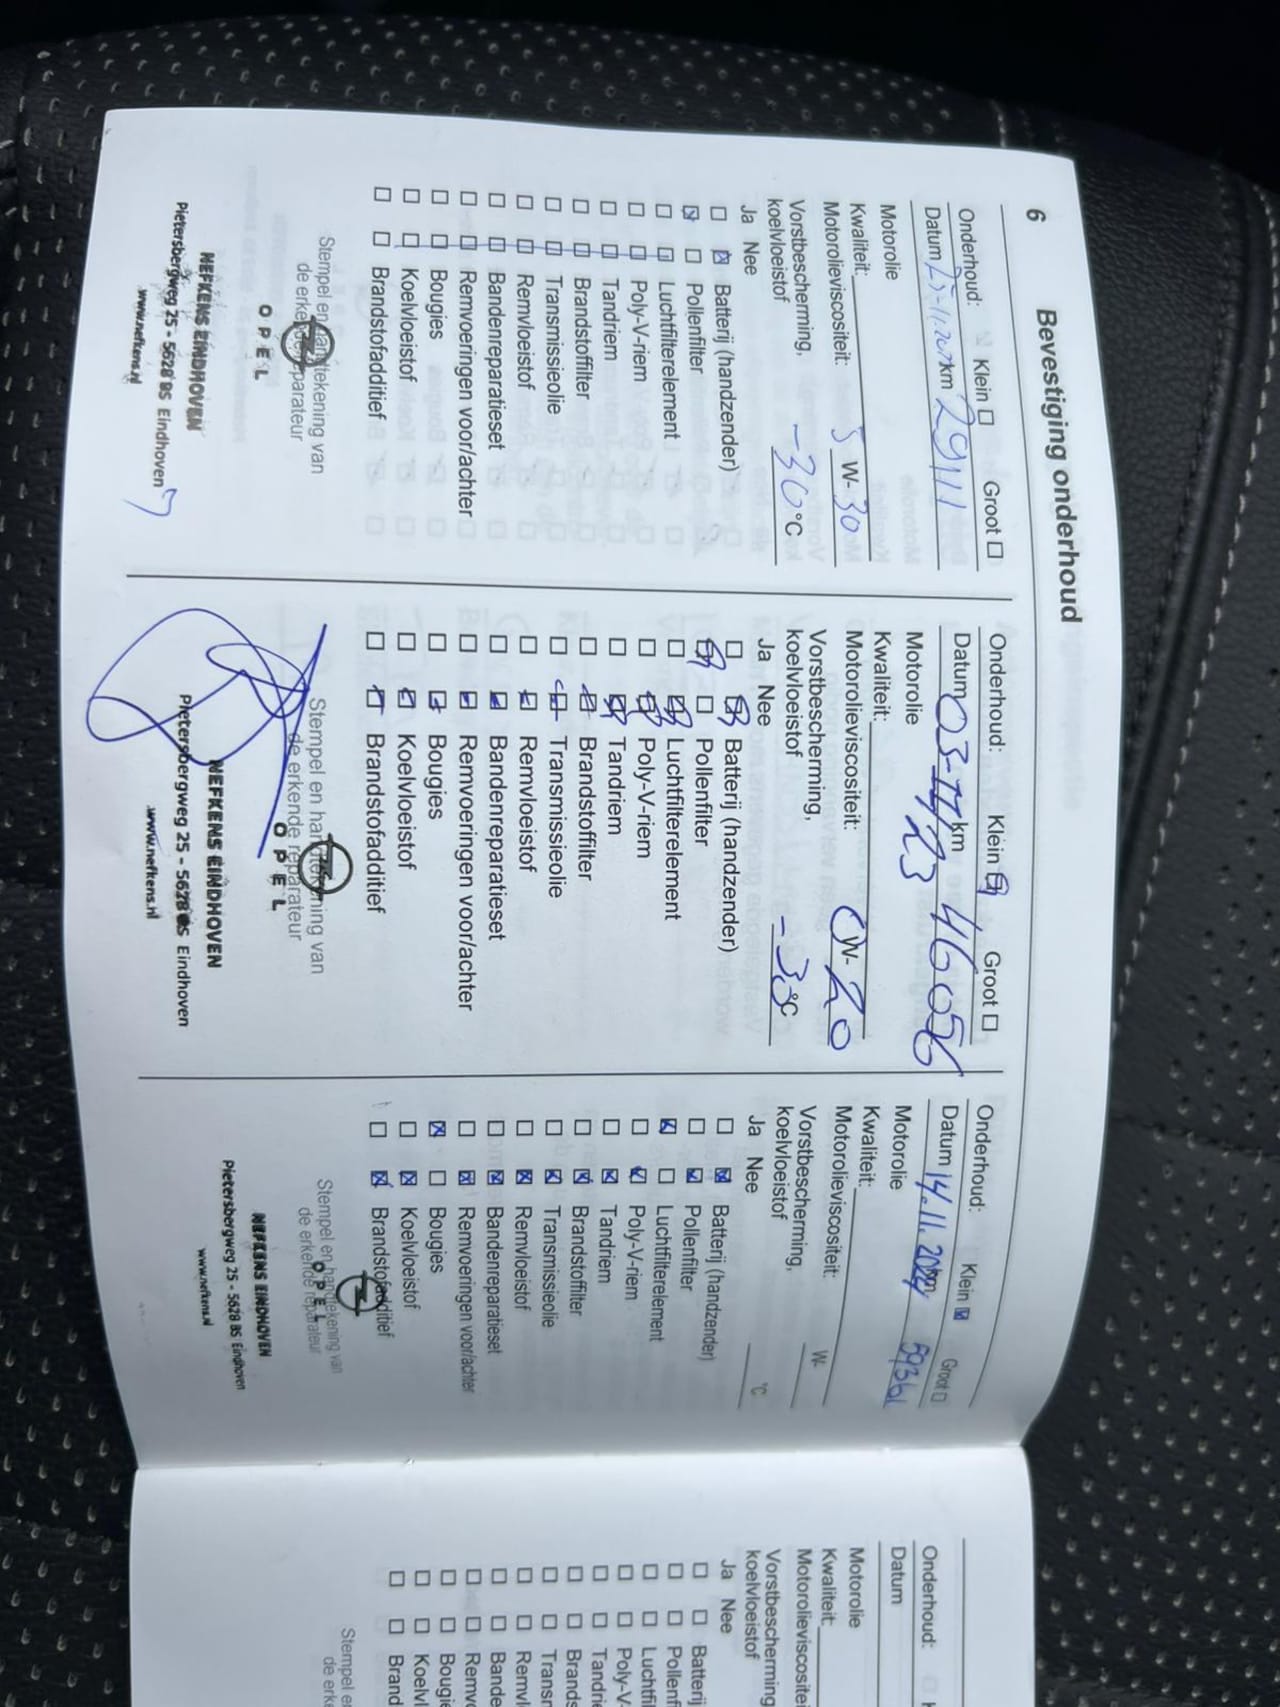 6
Bevestiging onderhoud
Onderhoud: Klein ☐ Groot ☐
Datum km 29111
Motorolie
Kwaliteit:
Motorolieviscositeit: 5 W- 30
Vorstbescherming,
koelvloeistof -30 °C
Ja Nee
☐ ☒ Batterij (handzender)
☒ ☐ Pollenfilter
☐ ☐ Luchtfilterelement
☐ ☐ Poly-V-riem
☐ ☐ Tandriem
☐ ☐ Brandstoffilter
☐ ☐ Transmissieolie
☐ ☐ Remvloeistof
☐ ☐ Bandenreparatieset
☐ ☐ Remvoeringen voor/achter
☐ ☐ Bougies
☐ ☐ Koelvloeistof
☐ ☐ Brandstofadditief
Stempel en handtekening van
de erkende reparateur
OPEL
NEFKENS EINDHOVEN
Pietersbergweg 25 - 5628 BS Eindhoven
www.nefkens.nl
Onderhoud: Klein ☒ Groot ☐
Datum 03-11/23 km 46056
Motorolie
Kwaliteit:
Motorolieviscositeit: 0 W- 20
Vorstbescherming,
koelvloeistof -30 °C
Ja Nee
☐ ☒ Batterij (handzender)
☒ ☐ Pollenfilter
☐ ☒ Luchtfilterelement
☐ ☒ Poly-V-riem
☐ ☒ Tandriem
☐ ☒ Brandstoffilter
☐ ☒ Transmissieolie
☐ ☒ Remvloeistof
☐ ☒ Bandenreparatieset
☐ ☒ Remvoeringen voor/achter
☐ ☒ Bougies
☐ ☒ Koelvloeistof
☐ ☒ Brandstofadditief
Stempel en handtekening van
de erkende reparateur
OPEL
NEFKENS EINDHOVEN
Pietersbergweg 25 - 5628 BS Eindhoven
www.nefkens.nl
Onderhoud: Klein ☒ Groot ☐
Datum 14.11.2024 km 59361
Motorolie
Kwaliteit:
Motorolieviscositeit: W-
Vorstbescherming,
koelvloeistof °C
Ja Nee
☐ ☒ Batterij (handzender)
☐ ☒ Pollenfilter
☒ ☐ Luchtfilterelement
☐ ☒ Poly-V-riem
☐ ☒ Tandriem
☐ ☒ Brandstoffilter
☐ ☒ Transmissieolie
☐ ☒ Remvloeistof
☐ ☒ Bandenreparatieset
☐ ☒ Remvoeringen voor/achter
☒ ☐ Bougies
☐ ☒ Koelvloeistof
☐ ☒ Brandstofadditief
Stempel en handtekening van
de erkende reparateur
OPEL
NEFKENS EINDHOVEN
Pietersbergweg 25 - 5628 BS Eindhoven
www.nefkens.nl
Onderhoud: ☐
Datum
Motorolie
Kwaliteit:
Motorolieviscositei
Vorstbescherming
koelvloeistof
Ja Nee
☐ ☐ Batterij
☐ ☐ Pollenf
☐ ☐ Luchtfil
☐ ☐ Poly-V-
☐ ☐ Tandri
☐ ☐ Brands
☐ ☐ Transr
☐ ☐ Remvl
☐ ☐ Bande
☐ ☐ Remv
☐ ☐ Bougi
☐ ☐ Koelvl
☐ ☐ Brand
Stempel e
de erk